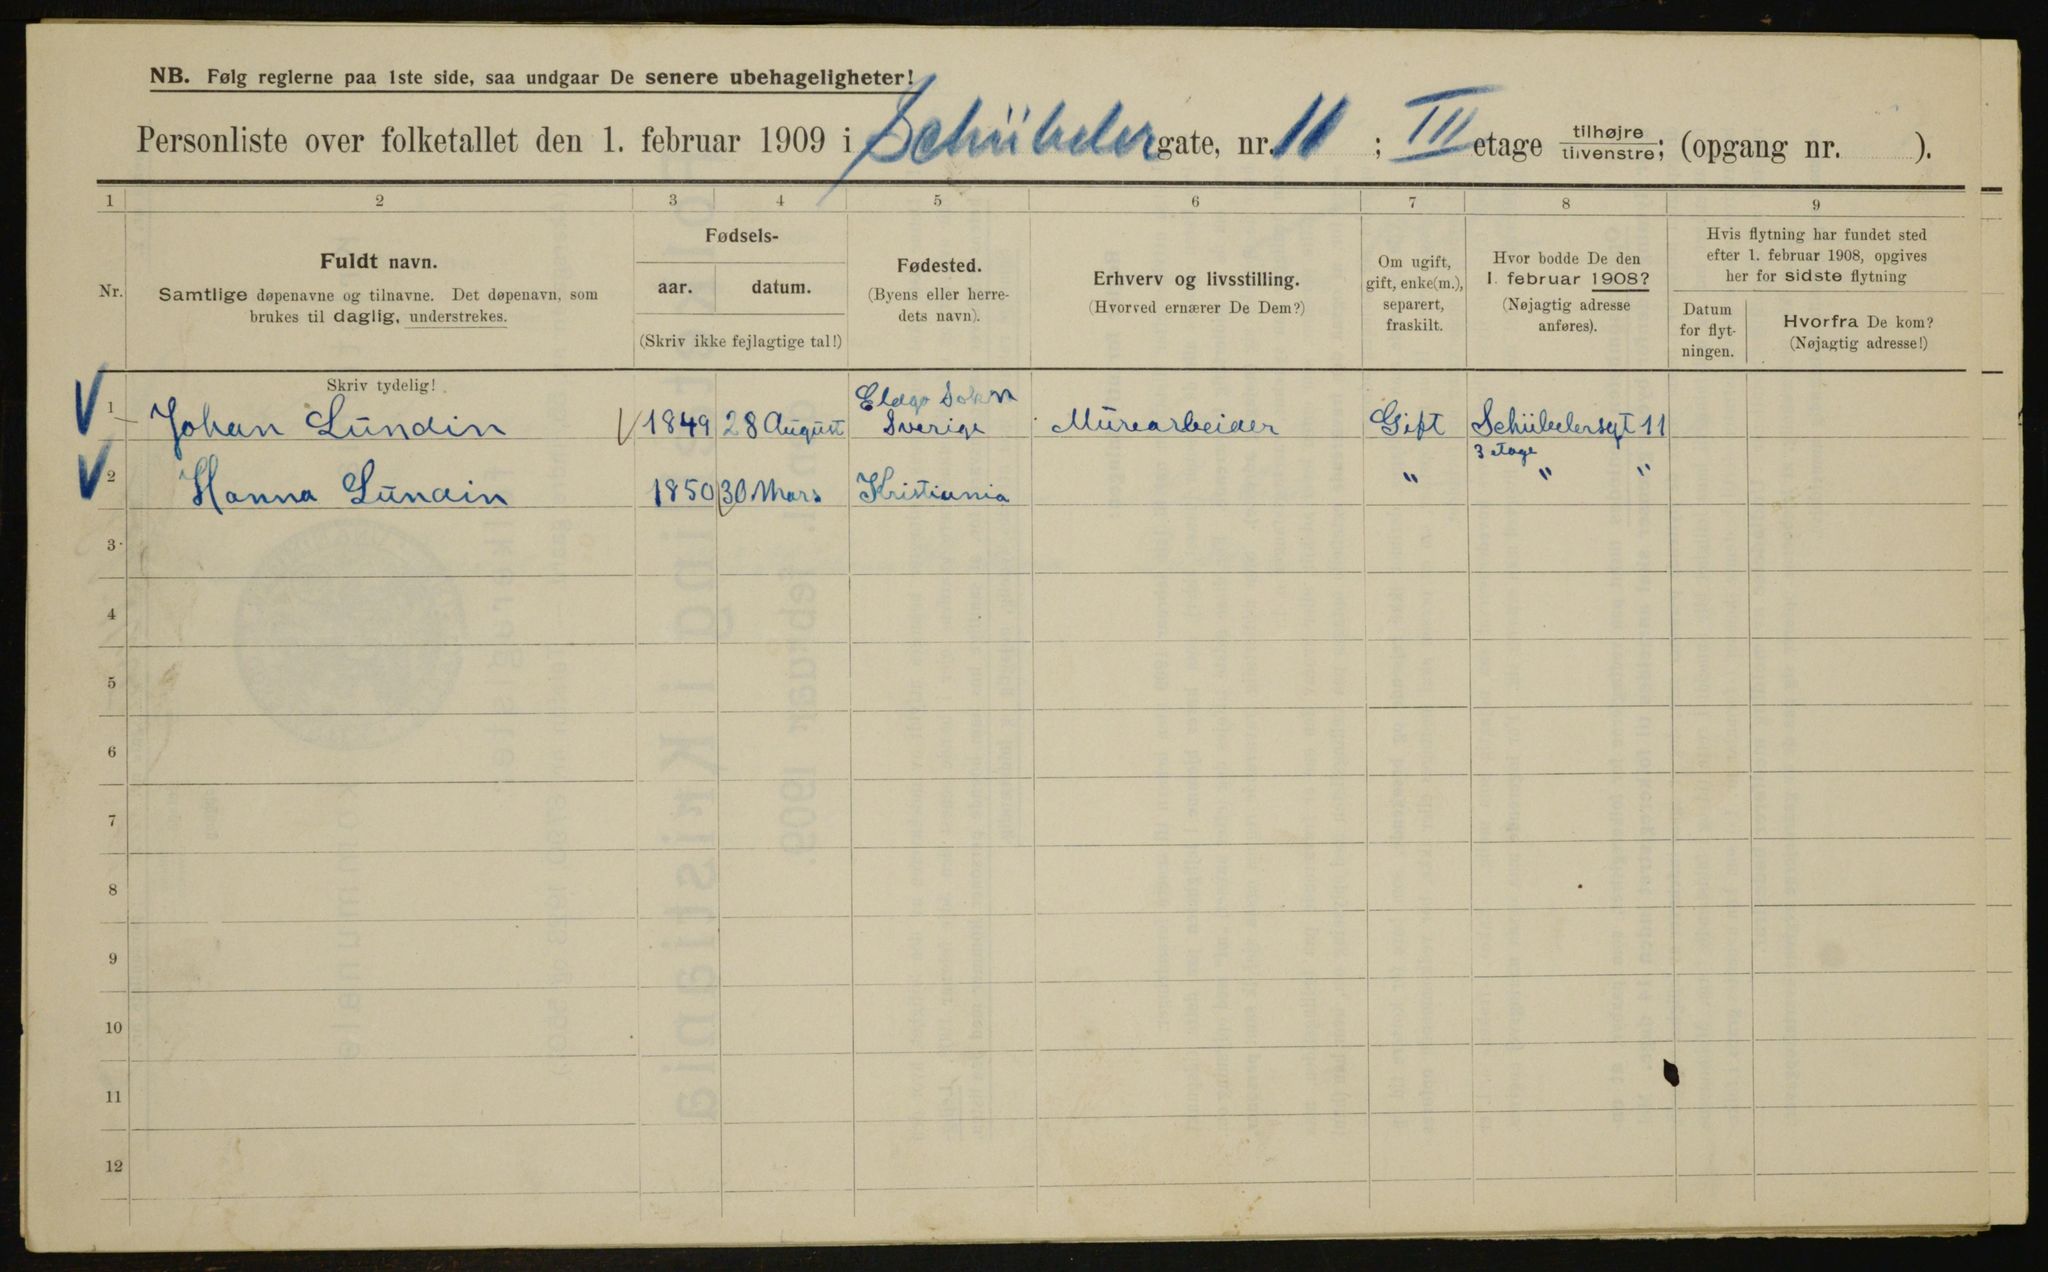 NB. Følg reglerne paa 1ste side, saa undgaar De senere ubehageligheter!
Personliste over folketallet den 1. februar 1909 i Schübelergate, nr. 11 ; III etage tilhøjre / tilvenstre; (opgang nr. ).
1 2 3 4 5 6 7 8 9
Nr.
Fuldt navn.
Samtlige døpenavne og tilnavne. Det døpenavn, som
brukes til daglig, understrekes.
Fødsels-
aar. datum.
(Skriv ikke fejlagtige tal!)
Fødested.
(Byens eller herre-
dets navn).
Erhverv og livsstilling.
(Hvorved ernærer De Dem?)
Om ugift,
gift, enke(m.),
separert,
fraskilt.
Hvor bodde De den
1. februar 1908?
(Nøjagtig adresse
anføres).
Hvis flytning har fundet sted
efter 1. februar 1908, opgives
her for sidste flytning
Datum
for flyt-
ningen.
Hvorfra De kom?
(Nøjagtig adresse!)
Skriv tydelig!
1 Johan Lundin 1849 28 August Sverige Murearbeider Gift Schübelersgt 11
3 etage
2 Hanna Lundin 1850 30 Mars Kristiania " " "
3
4
5
6
7
8
9
10
11
12